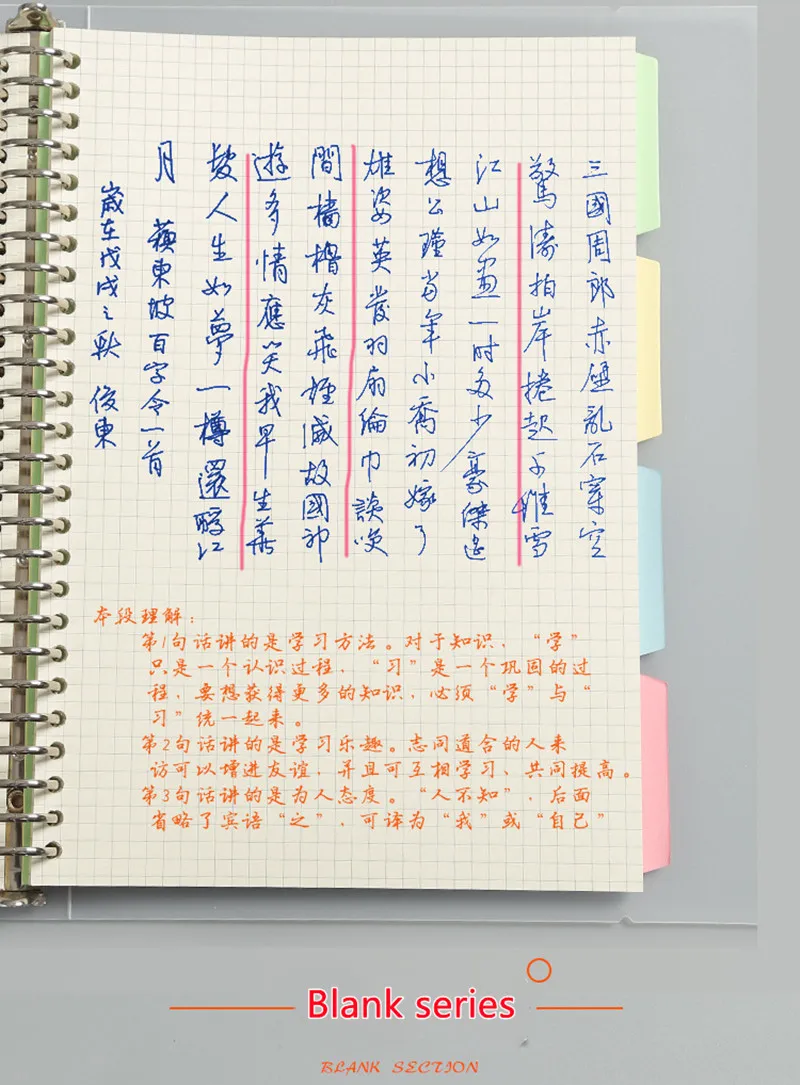 三國周郎赤壁亂石穿空
驚濤拍岸捲起千堆雪
江山如畫一時多少豪傑遙
想公瑾當年小喬初嫁了
雄姿英發羽扇綸巾談笑
間檣櫓灰飛煙滅故國神
遊多情應笑我早生華
髮人生如夢一樽還酹江
月 蘇東坡百字令一首
歲在戊戌之秋 俊東
本段理解：
第1句话讲的是学习方法。对于知识，“学”
只是一个认识过程，“习”是一个巩固的过
程，要想获得更多的知识，必须“学”与“
习”统一起来。
第2句话讲的是学习乐趣。志同道合的人来
访可以增进友谊，并且可互相学习、共同提高。
第3句话讲的是为人态度。“人不知”，后面
省略了宾语“之”，可译为“我”或“自己”
Blank series
BLANK SECTION